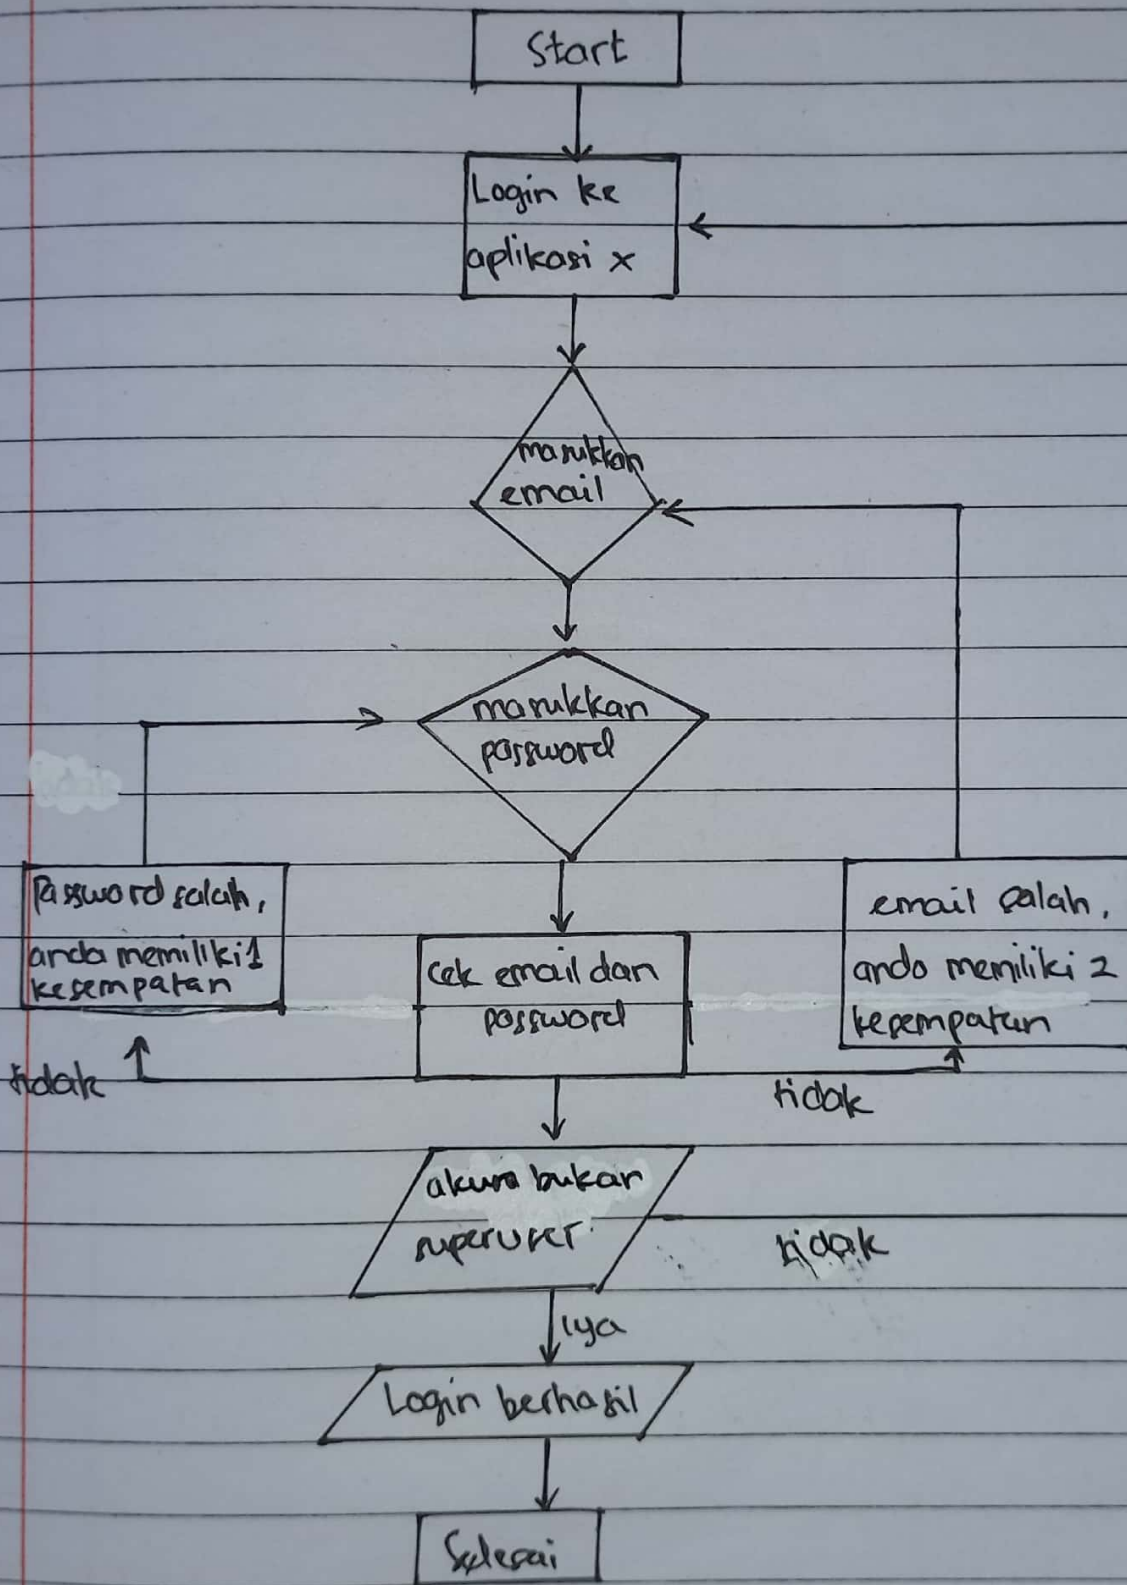 Start
Login ke
aplikasi x
masukkan
email
masukkan
password
Password salah,
anda memiliki 1
kesempatan
cek email dan
password
email salah,
anda memiliki 2
kesempatan
tidak
tidak
akun bukan
superuser
tidak
iya
Login berhasil
Selesai